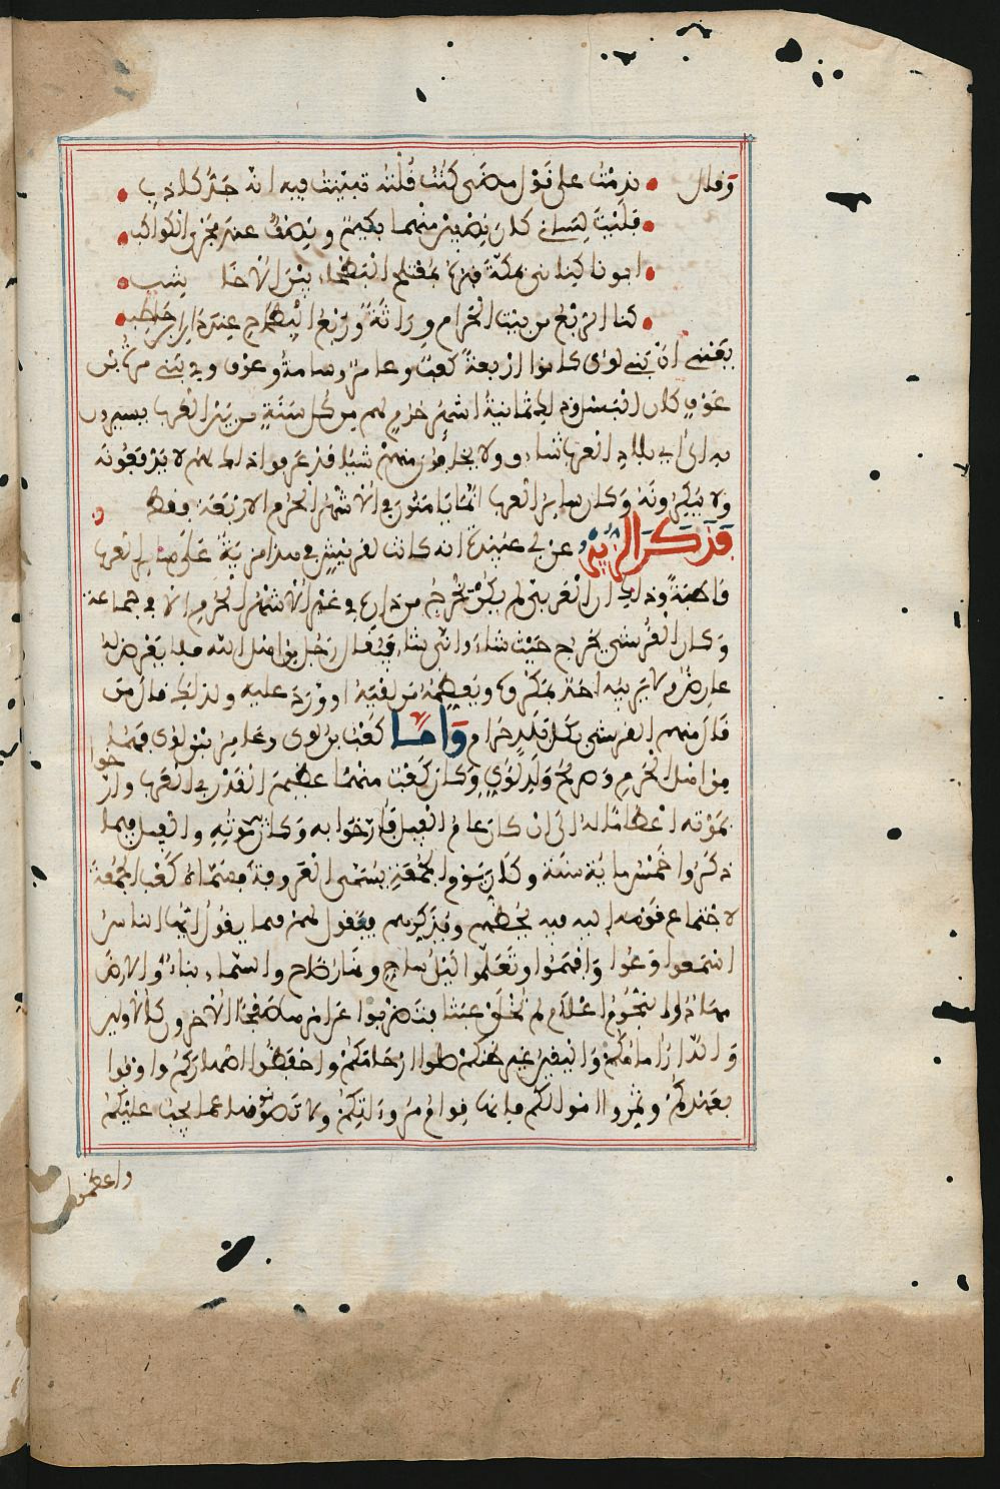 وقال ندمت على قول مضى كنت قلته تبينت فيه انه جد كاذب
فليت لساني كان نصفين منهما بكيم ونصف عند مجرى الكواكب
ابونا كناني بمكة قبره بمعتلج البطحاء بين الاخاشب
لنا الربع من بيت الحرام وراثة وربع البطاح عند دار ابن حاطب
يعني ان بني لؤي كانوا اربعة كعب وعامر وسامة وعوف وفي بني مرة بن
عوف كان البسل وذلك ثمانية اشهر حرم لهم من كل سنة من بين العرب يسيرون
به الى اي بلاد العرب شاءوا ولا يخافون منهم شيئا قد عرفوا ذلك لهم لا يدفعونه
ولا ينكرونه وكان ساير العرب انما يامنون في الاشهر الحرم الاربعة فقط
قد ذكر الزبير عن ابي عبيدة انه كانت لقريش في هذا مزية على ساير العرب
قاطبة وذلك ان العربي لم يكن يخرج من داره في غير الاشهر الحرم الا في جماعة
وكان القرشي يخرج حيث شاء وانى شاء فيقال رجل من اهل الله فلا يعرض له
عارض ولا يريبه احد بمكروه ويعظمه من لقيه او ورد عليه ولذلك قال من
قال منهم القرشي بكل بلد حرام واما كعب بن لؤي وعامر بن لؤي فهما
من اهل الحرم وصريح ولد لؤي وكان كعب منهما عظيم القدر في العرب وارخوا
بموته اعظاما له الى ان كان عام الفيل فارخوا به وكان بين موته والفيل فيما
ذكروا خمس ماية سنة وكان يوم الجمعة يسمى العروبة فسماه كعب الجمعة
لاجتماع قومه اليه فيه يخطبهم ويذكرهم فيقول لهم فيما يقول ايها الناس
اسمعوا وعوا وافهموا وتعلموا ليل ساج ونهار ضاح والسماء بناء والارض
مهاد والنجوم اعلام لم تخلق عبثا فتضربوا عن امرها صفحا الاخرون كالاولين
والدار امامكم واليقين غير ظنكم صلوا ارحامكم واحفظوا اصهاركم واوفوا
بعهدكم وثمروا اموالكم فانها قوام مروءاتكم ولا تصونوها عما يجب عليكم
واعظموا